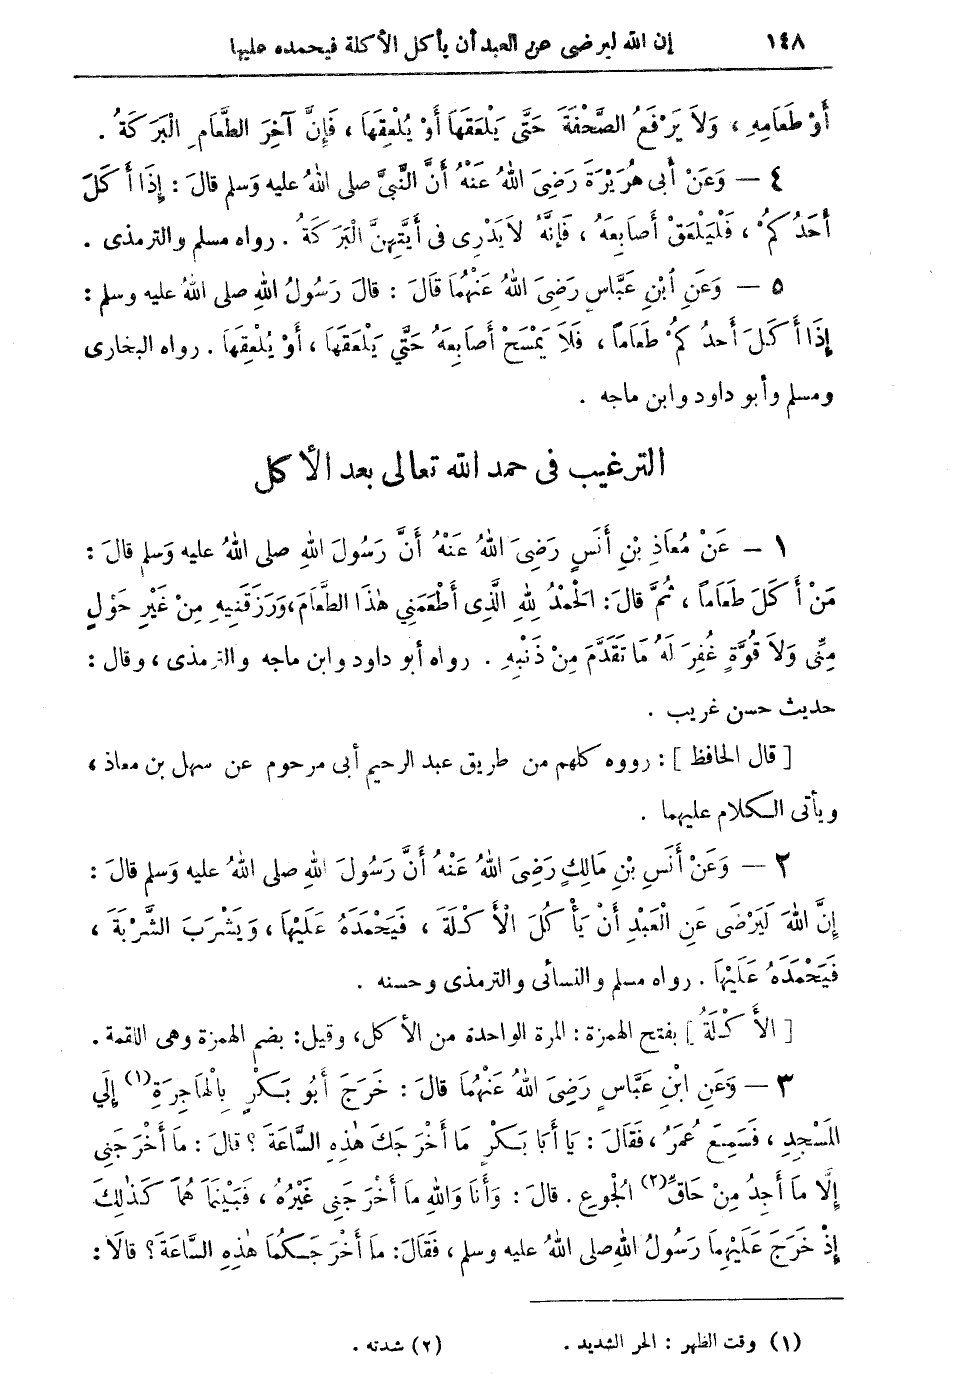 ١٤٨ إن الله ليرضى عن العبد أن يأكل الأكلة فيحمده عليها
أَوْ طَعَامِهِ ، وَلاَ يَرْفَعُ الصَّحْفَةَ حَتَّى يَلْعَقَهَا أَوْ يُلْعِقَهَا ، فَإِنَّ آخِرَ الطَّعَامِ الْبَرَكَةُ .
٤ — وَعَنْ أَبِى هُرَيْرَةَ رَضِىَ اللهُ عَنْهُ أَنَّ النَّبِىَّ صلى اللهُ عليه وَسلم قالَ : إِذَا أَكَلَ
أَحَدُكُمْ ، فَلْيَلْعَقْ أَصَابِعَهُ ، فَإِنَّهُ لاَيَدْرِى فى أَيَّتِهِنَّ الْبَرَكَةُ . رواه مسلم والترمذى .
٥ — وَعَنِ ابْنِ عَبَّاسٍ رَضِىَ اللهُ عَنْهُمَا قَالَ : قالَ رَسُولُ اللهِ صلى اللهُ عليه وسلم :
إِذَا أَكَلَ أَحدُكُمْ طَعَاماً ، فَلاَ يَمْسَحْ أَصَابِعَهُ حَتَّي يَلْعَقَهَا ، أَوْ يُلْعِقَهَا . رواه البخارى
ومسلم وأبو داود وابن ماجه .
الترغيب فى حمد الله تعالى بعد الأكل
١ — عَنْ مُعَاذِ بْنِ أَنَسٍ رَضِىَ اللهُ عَنْهُ أَنَّ رَسُولَ اللهِ صلى اللهُ عليه وَسلم قالَ :
مَنْ أَكَلَ طَعَاماً ، ثُمَّ قالَ : الْحَمْدُ لِلهِ الَّذِى أَطْعَمَنِي هٰذَا الطَّعَامَ، وَرَزَقَنِيهِ مِنْ غَيْرِ حَوْلٍ
مِنِّى وَلاَ قُوَّةٍ غُفِرَ لَهُ مَا تَقَدَّمَ مِنْ ذَنْبِهِ . رواه أبو داود وابن ماجه والترمذى ، وقال :
حديث حسن غريب .
[ قال الحافظ ] : رووه كلهم من طريق عبد الرحيم أبى مرحوم عن سهل بن معاذ ،
ويأتى الكلام عليهما .
٢ — وَعَنْ أَنَسِ بْنِ مَالِكٍ رَضِىَ اللهُ عَنْهُ أَنَّ رَسُولَ اللهِ صلى اللهُ عليه وَسلم قالَ :
إِنَّ اللهَ لَيَرْضَى عَنِ الْعَبْدِ أَنْ يَأْكُلَ الْأَكْلَةَ ، فَيَحْمَدَهُ عَلَيْهَا ، وَيَشْرَبَ الشَّرْبَةَ ،
فَيَحْمَدَهُ عَلَيْهَا . رواه مسلم والنسائى والترمذى وحسنه .
[ الأَكْلَةُ ] بفتح الهمزة : المرة الواحدة من الأكل، وقيل: بضم الهمزة وهى اللقمة .
٣ — وَعَنِ ابْنِ عَبَّاسٍ رَضِىَ اللهُ عَنْهُمَا قالَ : خَرَجَ أَبُو بَكْرٍ بِالْهَاجِرَةِ (١) إِلَي
المَسْجِدِ ، فَسَمِعَ عُمَرُ ، فَقَالَ : يَا أَبَا بَكْرٍ مَا أَخْرَجَكَ هٰذِهِ السَّاعَةَ ؟ قالَ : مَا أَخْرَجَنِي
إِلَّا مَا أَجِدُ مِنْ حَاقِّ (٢) الْجُوعِ . قالَ : وَأَنَا وَاللهِ مَا أَخْرَجَنِي غَيْرُهُ ، فَبَيْنَمَا هُمَا كَذٰلِكَ
إِذْ خَرَجَ عَلَيْهِمَا رَسُولُ اللهِ صلى اللهُ عليه وسلم ، فَقَالَ: مَا أَخْرَجَكُمَا هٰذِهِ السَّاعَةَ ؟ قالَا :
(١) وقت الظهر : الحر الشديد . (٢) شدته .